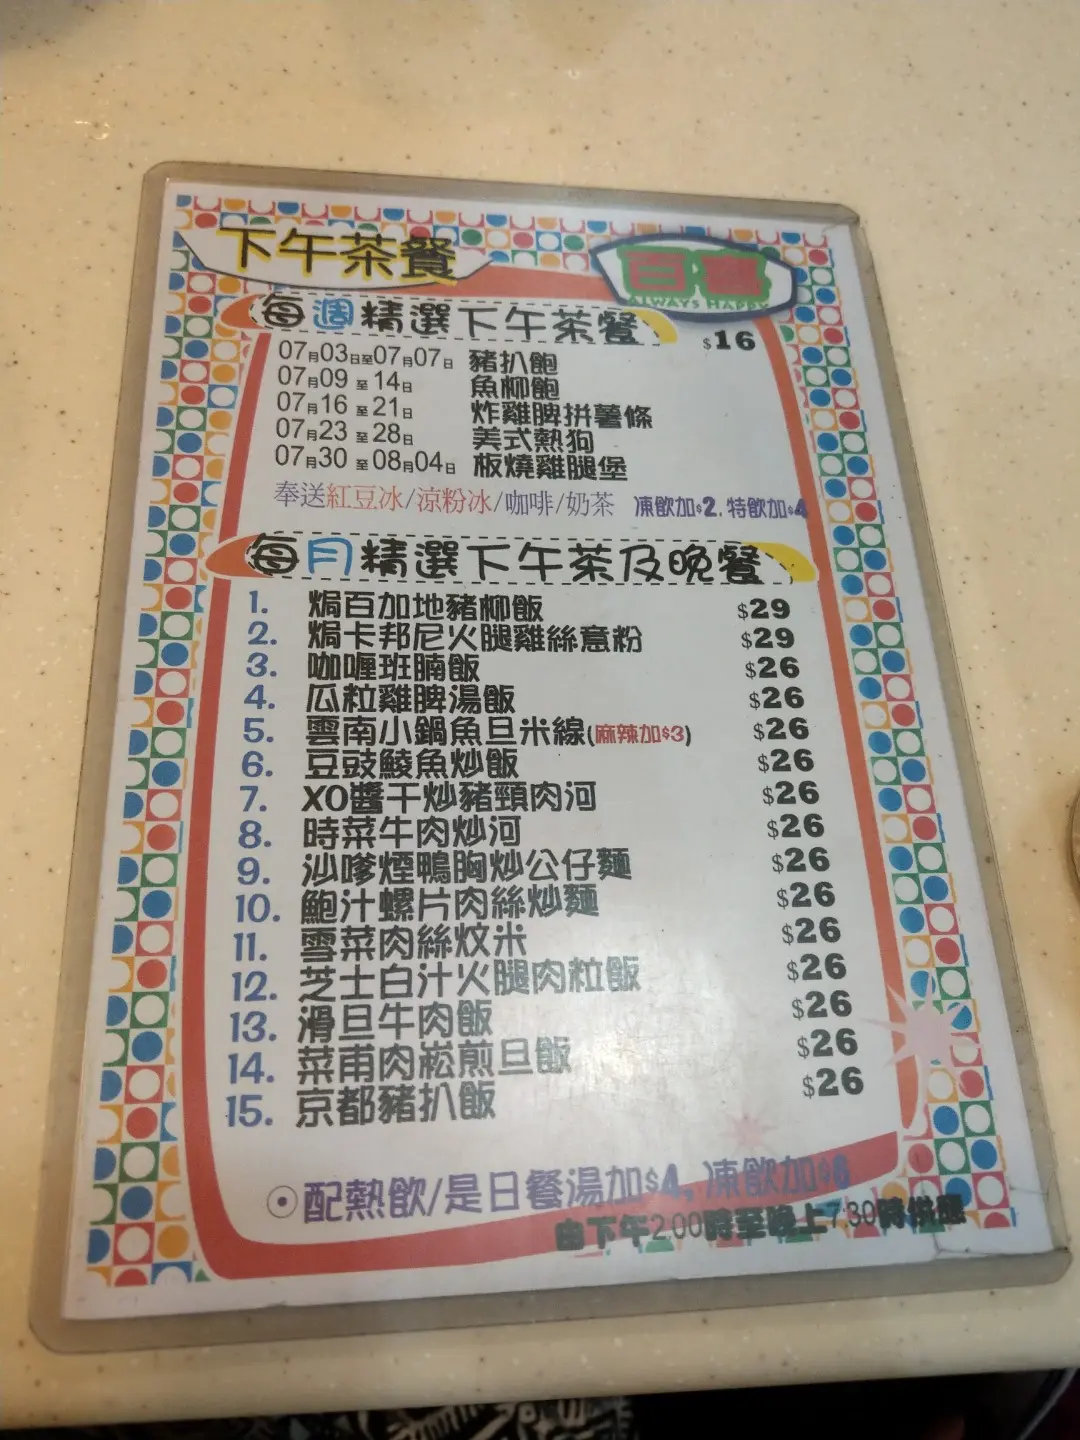 下午茶餐
百喜
ALWAYS HAPPY
每週精選下午茶餐 $16
07月03日至07月07日 豬扒飽
07月09至14日 魚柳飽
07月16至21日 炸雞脾拼薯條
07月23至28日 美式熱狗
07月30至08月04日 板燒雞腿堡
奉送紅豆冰/涼粉冰/咖啡/奶茶 凍飲加$2.特飲加$4
每月精選下午茶及晚餐
1. 焗百加地豬柳飯 $29
2. 焗卡邦尼火腿雞絲意粉 $29
3. 咖喱班腩飯 $26
4. 瓜粒雞脾湯飯 $26
5. 雲南小鍋魚旦米線(麻辣加$3) $26
6. 豆豉鯪魚炒飯 $26
7. XO醬干炒豬頸肉河 $26
8. 時菜牛肉炒河 $26
9. 沙嗲煙鴨胸炒公仔麵 $26
10. 鮑汁螺片肉絲炒麵 $26
11. 雪菜肉絲炆米 $26
12. 芝士白汁火腿肉粒飯 $26
13. 滑旦牛肉飯 $26
14. 菜甫肉崧煎旦飯 $26
15. 京都豬扒飯 $26
⊙配熱飲/是日餐湯加$4,凍飲加$6
由下午2:00時至晚上7:30時供應